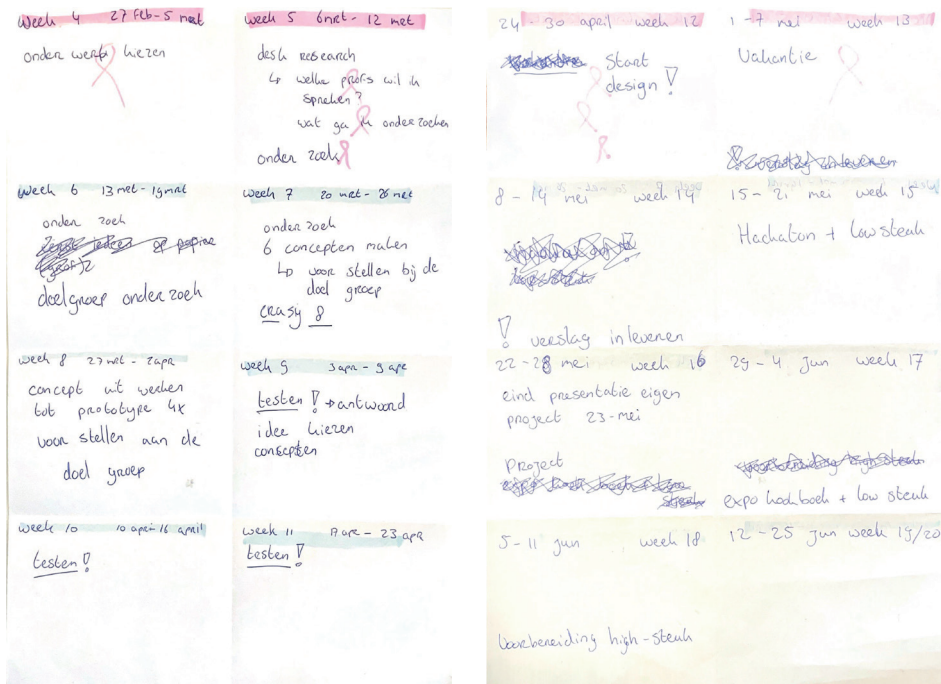 week 4 27 feb - 5 mrt
onder werp kiezen
week 5 6mrt - 12 mrt
desk research
↳ welke profs wil ik
spreken?
wat ga ik onderzoeken
onder zoek
week 6 13 mrt - 19 mrt
onder zoek
doelgroep onderzoek
week 7 20 mrt - 26 mrt
onder zoek
6 concepten maken
↳ voor stellen bij de
doel groep
crasy 8
week 8 27 mrt - 2 apr
concept uit werken
tot prototype 4x
voor stellen aan de
doel groep
week 9 3 apr - 9 apr
testen! → antwoord
idee kiezen
concepten
week 10 10 apr - 16 april
testen!
week 11 17 apr - 23 apr
testen!
24 - 30 april week 12
Start
design!
1 - 7 mei week 13
Vakantie
8 - 14 mei week 14
! verslag inleveren
15 - 21 mei week 15
Hackaton + low steak
22 - 28 mei week 16
eind presentatie eigen
project 23-mei
Project
29 - 4 jun week 17
expo kookboek + low steak
5 - 11 jun week 18
Voorbereiding high-steak
12 - 25 jun week 19/20